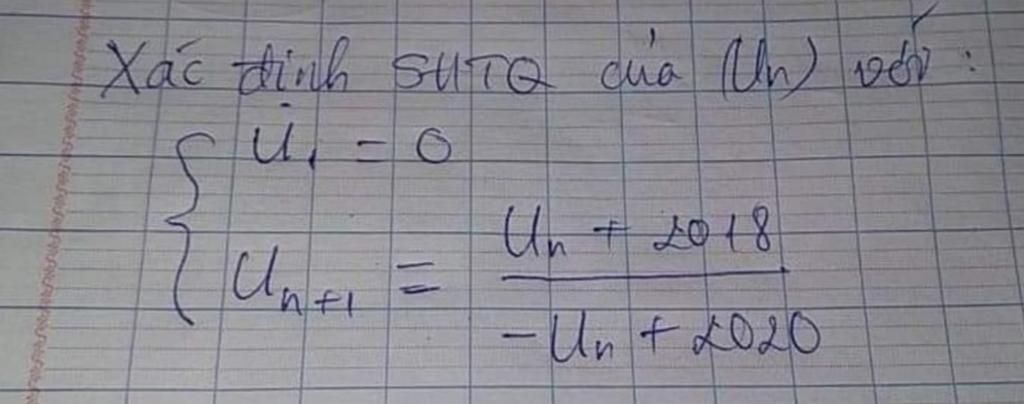 Xác định SHTQ của (Un) với :
U₁ = 0
Uₙ₊₁ = (Uₙ + 2018) / (-Uₙ + 2020)